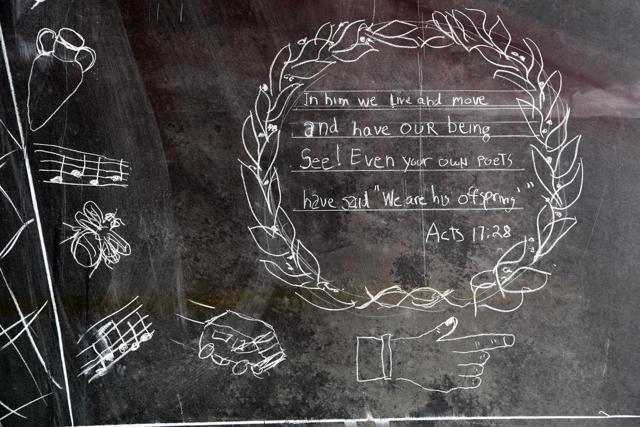 In him we live and move
and have OUR being
See! Even your own POETS
have said "We are his offspring'"
Acts 17:28